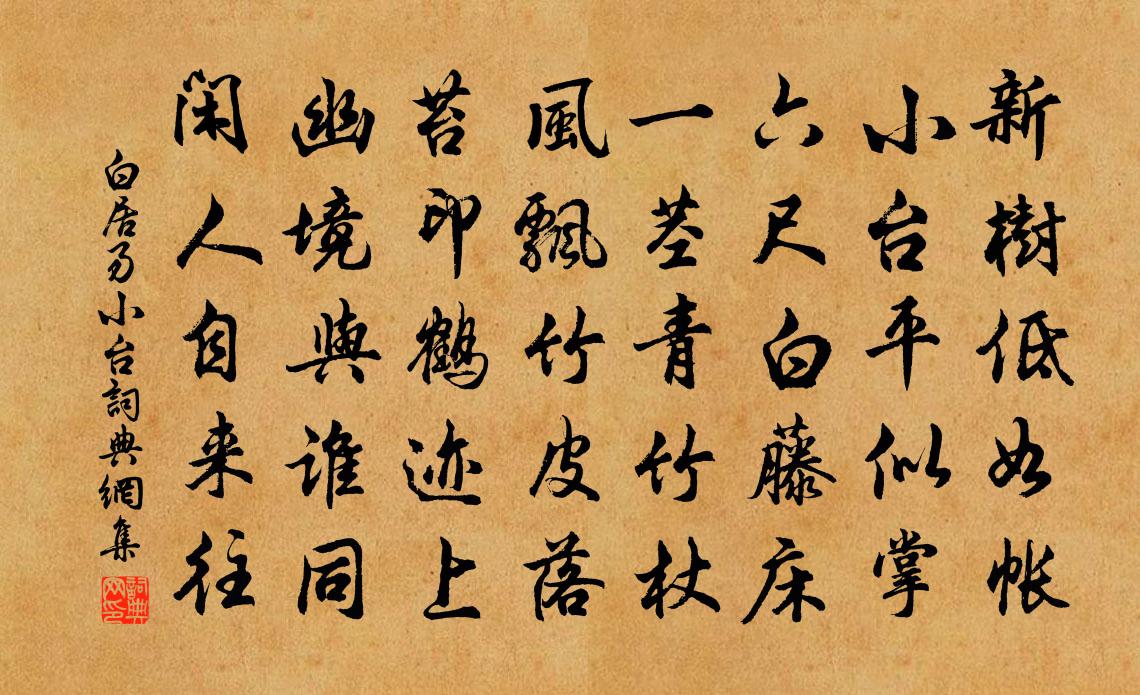 新樹低如帐
小台平似掌
六尺白藤床
一茎青竹杖
風飄竹皮落
苔印鶴迹上
幽境與誰同
闲人自来往
白居易小台詞典網集
詞典网印